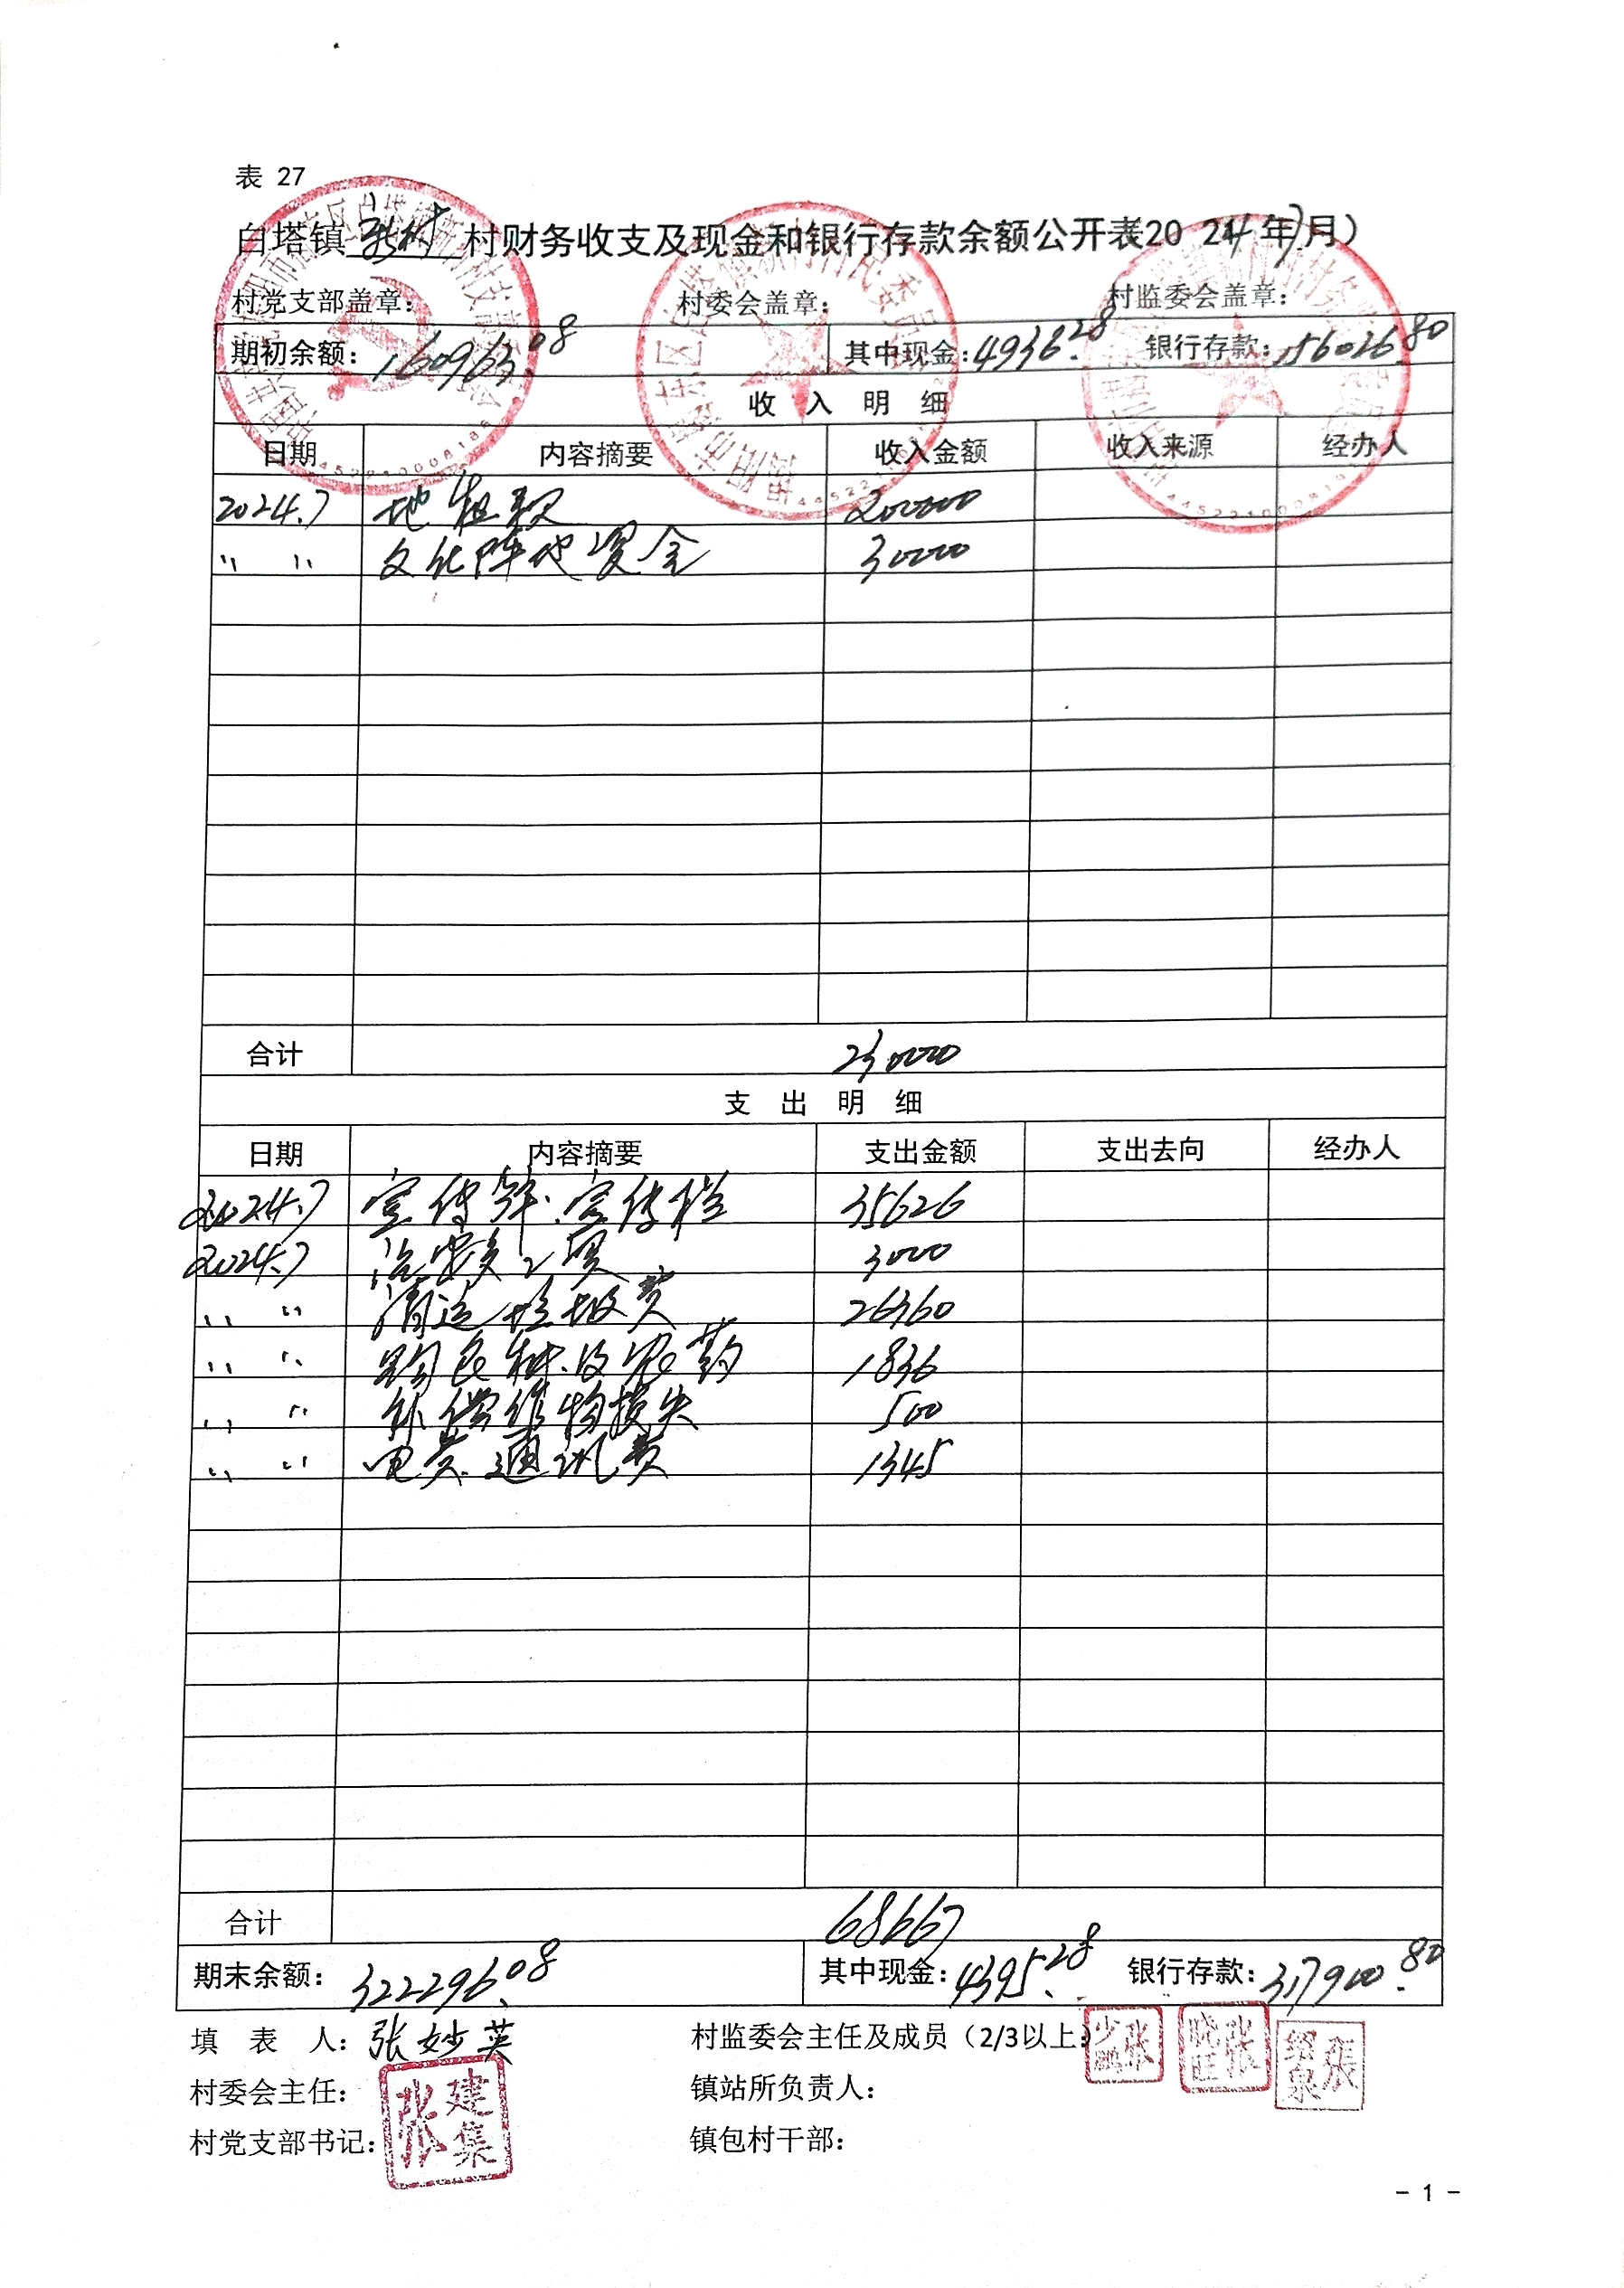 表 27
白塔镇 新村 村财务收支及现金和银行存款余额公开表20 24 年 7 月）
村党支部盖章： 村委会盖章： 村监委会盖章：
期初余额： 160963.08 其中现金：4936.28 银行存款：156026.80
收 入 明 细
日期 内容摘要 收入金额 收入来源 经办人
2024.7 地租款 200000
〃 〃 文化阵地资金 30000
合计 230000
支 出 明 细
日期 内容摘要 支出金额 支出去向 经办人
2024.7 宣传牌、宣传栏 35626
2024.7 治安员工资 3000
〃 〃 清运垃圾费 26360
〃 〃 购良种及农药 1836
〃 〃 补偿作物损失 500
〃 〃 电费、通讯费 1345
合计 68667
期末余额： 322296.08 其中现金：4395.28 银行存款：317900.80
填 表 人：张妙英 村监委会主任及成员（2/3以上）： 张少鹏 张晓旺 張绍泉
村委会主任： 镇站所负责人：
村党支部书记： 张建集 镇包村干部：
- 1 -